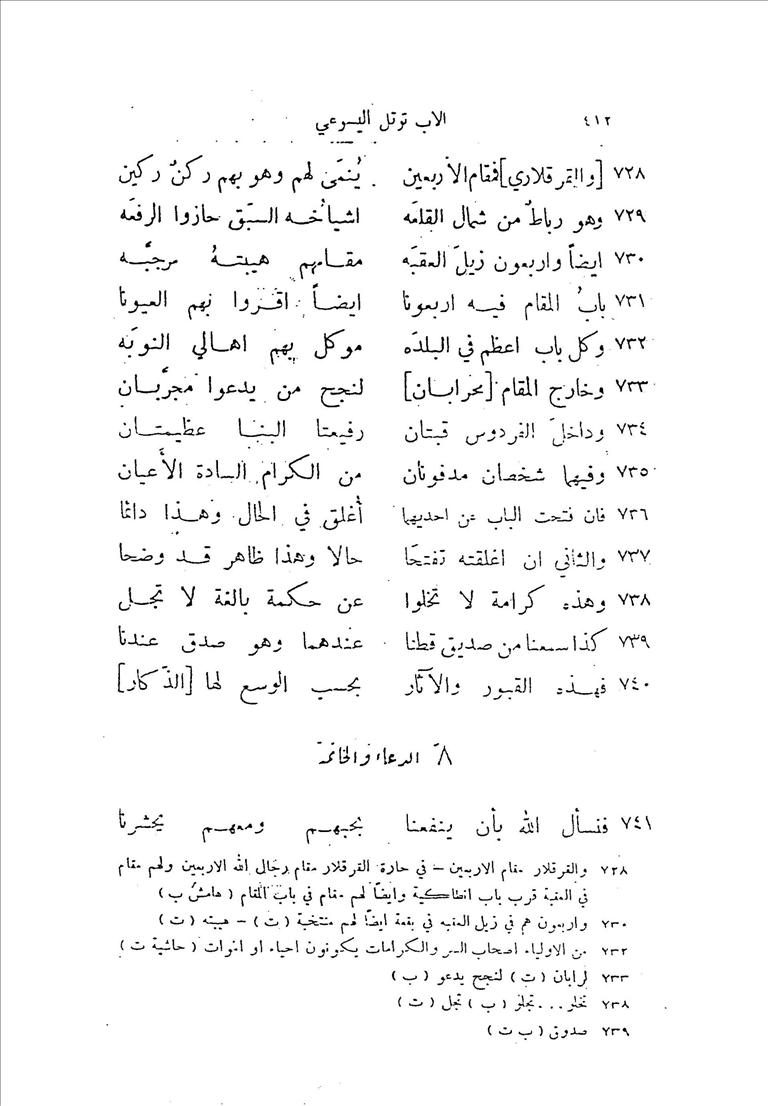 ٤١٢ الاب توتل اليسوعي
٧٢٨ [والقرقلاري] فمقام الأربعين يُنمَى لهم وهو بهم ركنٌ ركين
٧٢٩ وهو رباطٌ من شمال القلعَه اشياخـه السبّق حازوا الرفعَه
٧٣٠ ايضاً واربعون زيلَ العقبَه مقامهم هيبتـهُ مرجبَّـه
٧٣١ بابُ المقام فيـه اربعونا ايضاً اقـروا بهم العيونا
٧٣٢ وكل باب اعظم في البلدَه موكل بهم اهالي النوبَه
٧٣٣ وخارج المقام [محرابـان] لنجح من يدعوا مجرَّبـان
٧٣٤ وداخلَ الفردوس قبتان رفيعتا البنـا عظيمتـان
٧٣٥ وفيهما شخصان مدفونان من الكرام السادة الأعيان
٧٣٦ فان فتحت الباب عن احديهما أغلق في الحال وهـذا دائما
٧٣٧ والثاني ان اغلقته تفتحَا حالا وهذا ظاهر قـد وضحا
٧٣٨ وهذه كرامة لا تخلوا عن حكمة بالغة لا تجـل
٧٣٩ كذا سمعنا من صديق قطنا عندهما وهو صدق عندنا
٧٤٠ فهـذه القبور والآثار بحسب الوسع لها [الذكار]
٨ّ الدعاء والخاتمة
٧٤١ فنسأل الله بأن ينفعنا بحبهـم ومعهـم يحشرنا
٧٢٨ والقرقلار مقام الاربعين – في حارة القرقلار مقام رجال الله الاربعين ولهم مقام
في العقبة قرب باب انطاكية وايضاً لهم مقام في باب المقام ( هامش ب )
٧٣٠ واربعون هم في زيل العقبه في بقعة ايضاً لهم منتخبة ( ت ) – هيبته ( ت )
٧٣٢ من الاولياء اصحاب السر والكرامات يكونون احياء او اموات ( حاشية ت )
٧٣٣ لرابان ( ت ) لنجح يدعو ( ب )
٧٣٨ تخلو . . . تجلو ( ب ) تجل ( ت )
٧٣٩ صدوق ( ب ت )